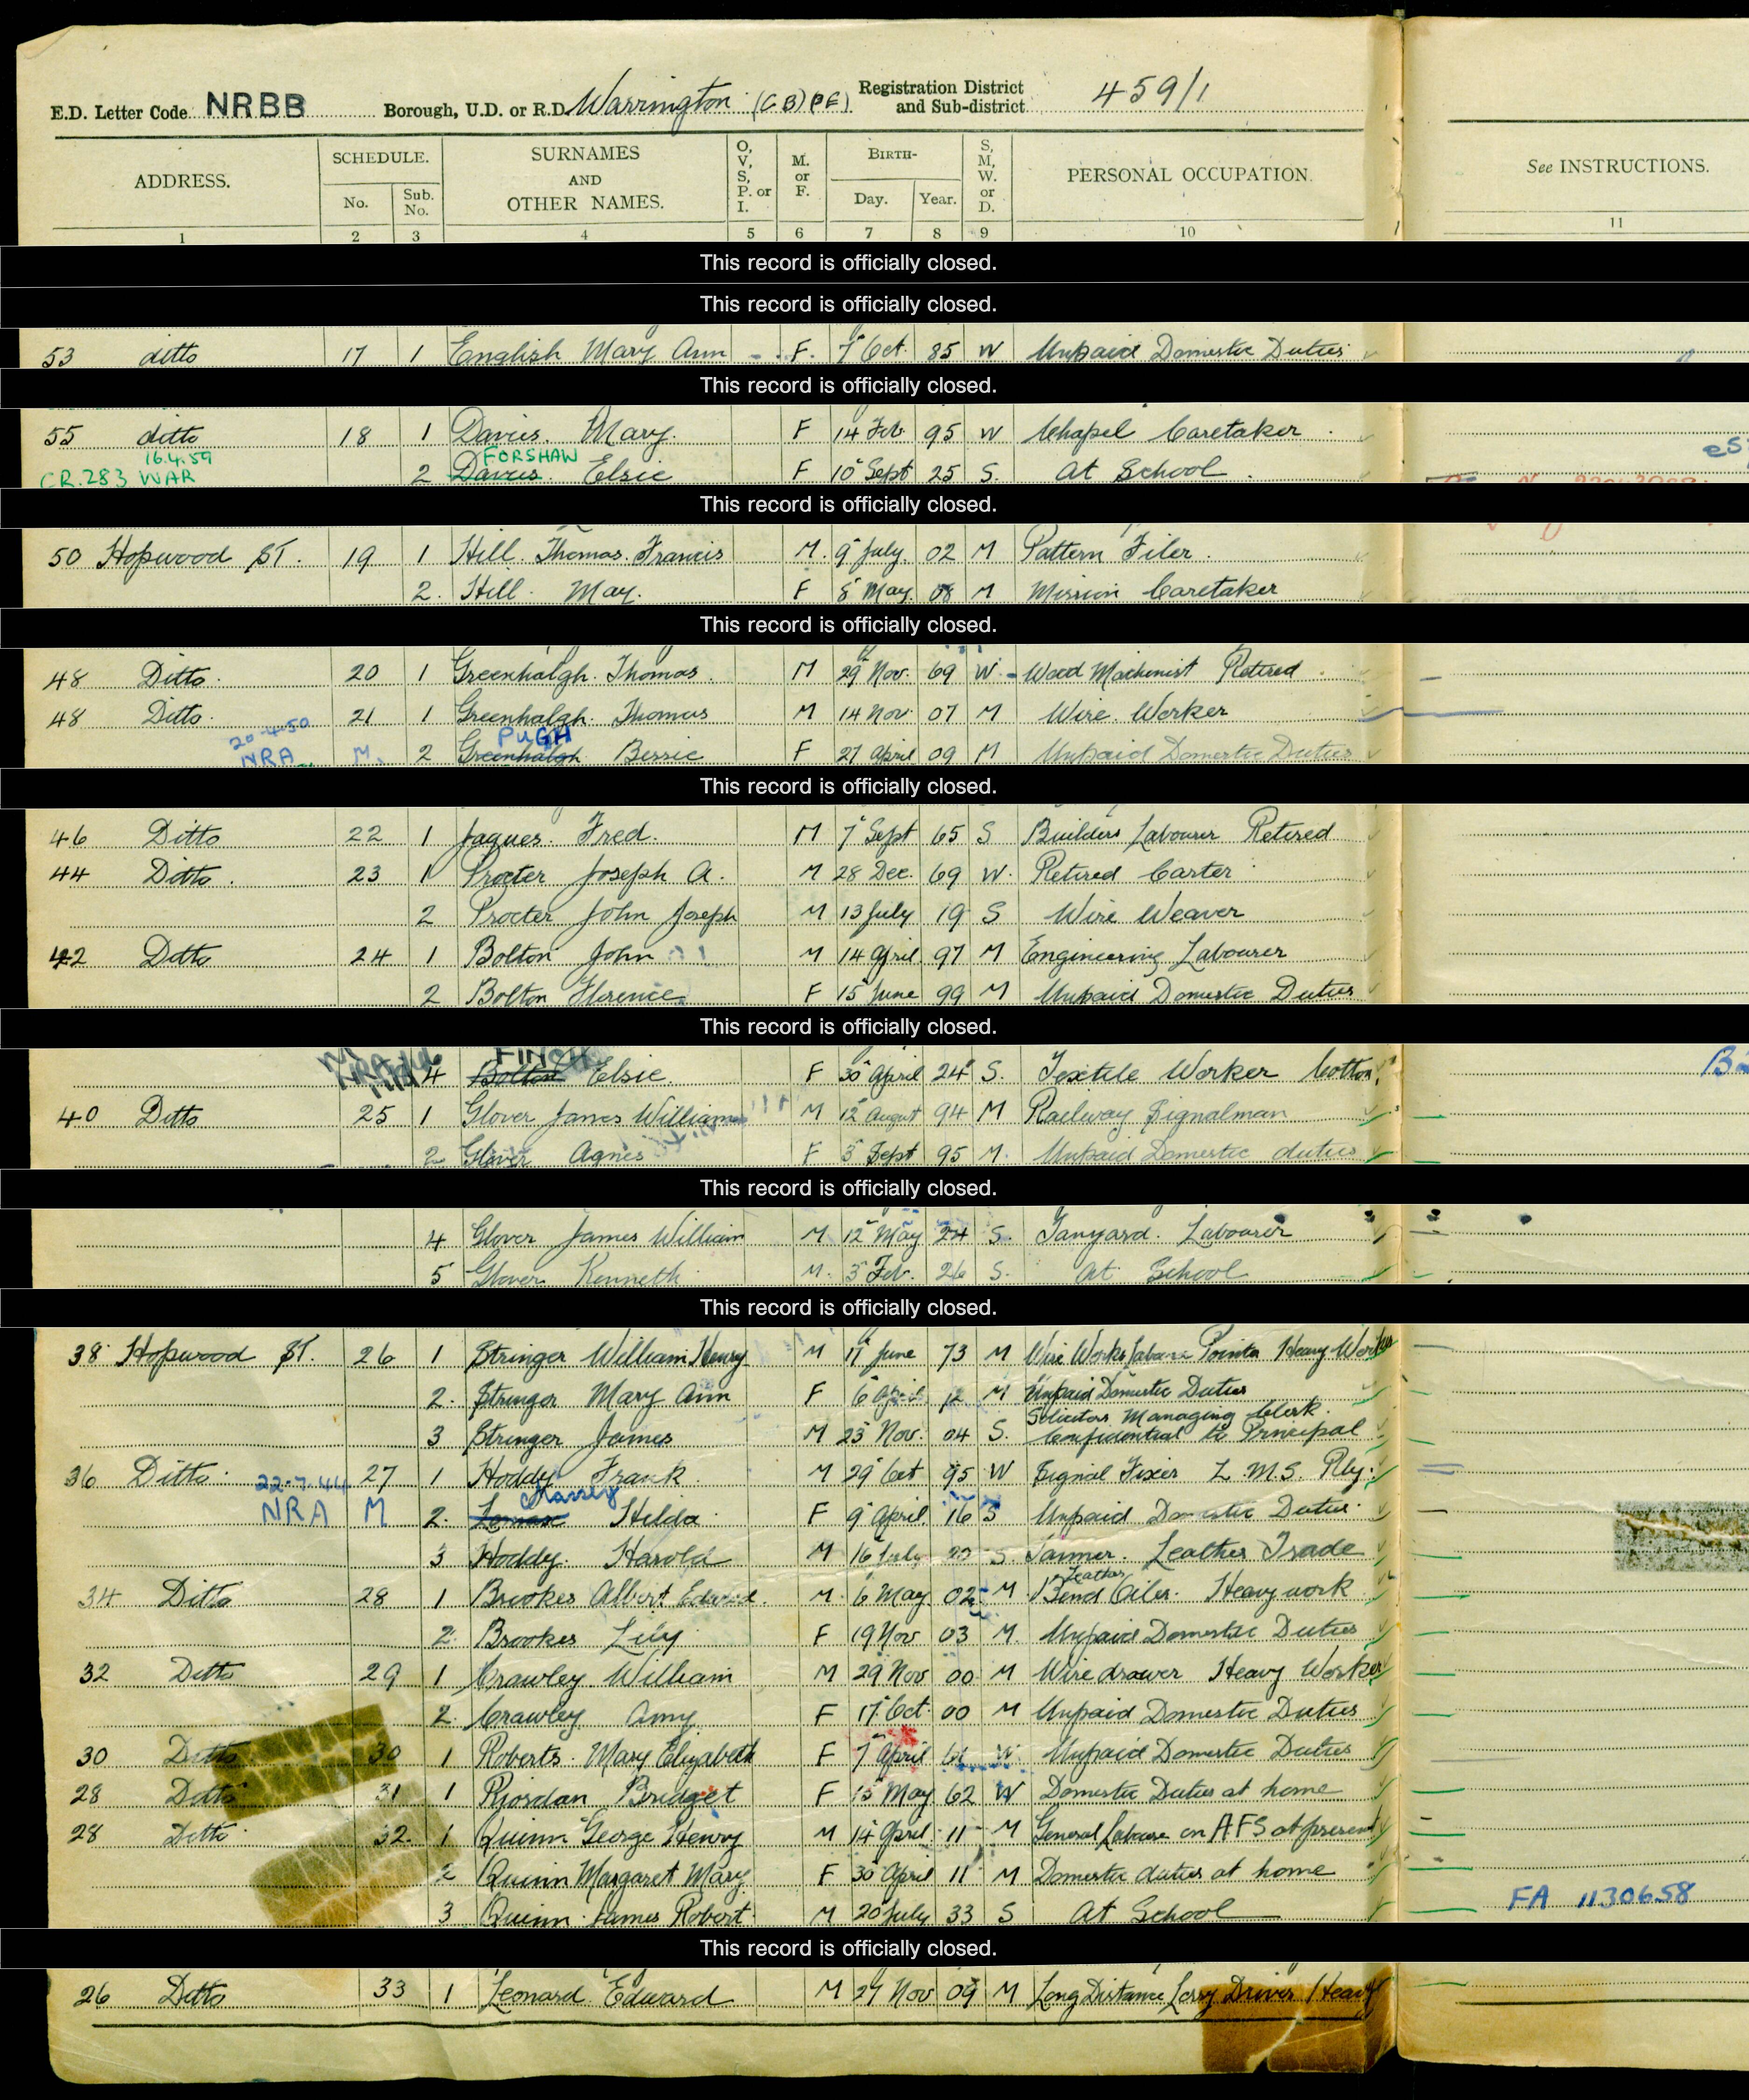 E.D. Letter Code NRBB Borough, U.D. or R.D. Warrington (C B) (P E) Registration District and Sub-district 459/1
ADDRESS. SCHEDULE. No. Sub. No. SURNAMES AND OTHER NAMES. O, V, S, P. or I. M. or F. BIRTH- Day. Year. S, M, W. or D. PERSONAL OCCUPATION. See INSTRUCTIONS.
1 2 3 4 5 6 7 8 9 10 11
This record is officially closed.
This record is officially closed.
53 ditto 17 1 English Mary Ann - F. 7 Oct. 85 W Unpaid Domestic Duties
This record is officially closed.
55 ditto 18 1 Davies. Mary. F 14 Feb 95 W Chapel Caretaker.
16.4.59 FORSHAW
CR.283 WAR 2 Davies. Elsie F 10 Sept 25 S. At School.
This record is officially closed.
50 Hopwood ST. 19 1 Hill. Thomas. Francis M. 9 July. 02 M Pattern Filer.
2. Hill. May. F 8 May. 08 M Mission Caretaker
This record is officially closed.
48 Ditto. 20 1 Greenhalgh. Thomas. M 29 Nov. 69 W. - Wood Machinist Retired
48 Ditto. 21 1 Greenhalgh. Thomas M 14 Nov 07 M Wire. Worker
20-4-50 PUGH
NRA M. 2 Greenhalgh Bessie F 27 April 09 M Unpaid Domestic Duties
This record is officially closed.
46 Ditto 22 1 Jaques. Fred. M 7 Sept 65 S Builders Labourer Retired
44 Ditto. 23 1 Procter Joseph A. M 28 Dec. 69 W. Retired Carter
2 Procter John Joseph M 13 July 19 S Wire Weaver
42 Ditto 24 1 Bolton John M 14 April 97 M Engineering Labourer
2 Bolton Florence F 15 June 99 M Unpaid Domestic Duties
This record is officially closed.
4 Bolton Elsie. F 30 April 24 S. Textile Worker Cotton.
40 Ditto 25 1 Glover James William M 12 August 94 M Railway Signalman
2 Glover Agnes F 3 Sept 95 M. Unpaid Domestic duties
This record is officially closed.
4 Glover James William M 12 May 24 S. Tanyard. Labourer
5 Glover Kenneth M. 3 Feb. 26 S. At School
This record is officially closed.
38 Hopwood ST. 26 1 Stringer William Henry M 11 June 73 M Wire Works Heavy Worker
2. Stringer Mary Ann F 6 April 12 M Unpaid Domestic Duties
Solicitors Managing Clerk.
3 Stringer James M 23 Nov. 04 S. Confidential to Principal
36 Ditto. 22-7-44 27 1 Hoddy Frank M 29 Oct 95 W Signal Fixer L.M.S. Rly.
NRA M 2. Hilda F 9 April 16 S Unpaid Domestic Duties.
3 Hoddy. Harold M 16 July 20 S. Tanner. Leather Trade
Leather
34 Ditto 28 1 Brookes Albert Edward. M. 6 May 02 M Bend Oiler. Heavy work
2. Brookes Lily F 19 Nov 03 M. Unpaid Domestic Duties
32 Ditto 29 1 Crawley William M 29 Nov 00 M Wire drawer Heavy Worker
2. Crawley Amy F 17 Oct. 00 M Unpaid Domestic Duties
30 Ditto 30 1 Roberts. Mary Elizabeth F 7 April W. Unpaid Domestic Duties
28 Ditto 31 1 Riordan Bridget F 15 May 62 W Domestic Duties at home
28 Ditto 32. 1 Quinn George Henry M 14 April 11 M General Labourer on AFS at present
2 Quinn Margaret Mary F 30 April 11 M Domestic duties at home
3 Quinn James Robert M 20 July 33 S At School FA 1130658
This record is officially closed.
26 Ditto 33 1 Leonard Edward M 27 Nov 09 M Long Distance Lorry Driver Heavy